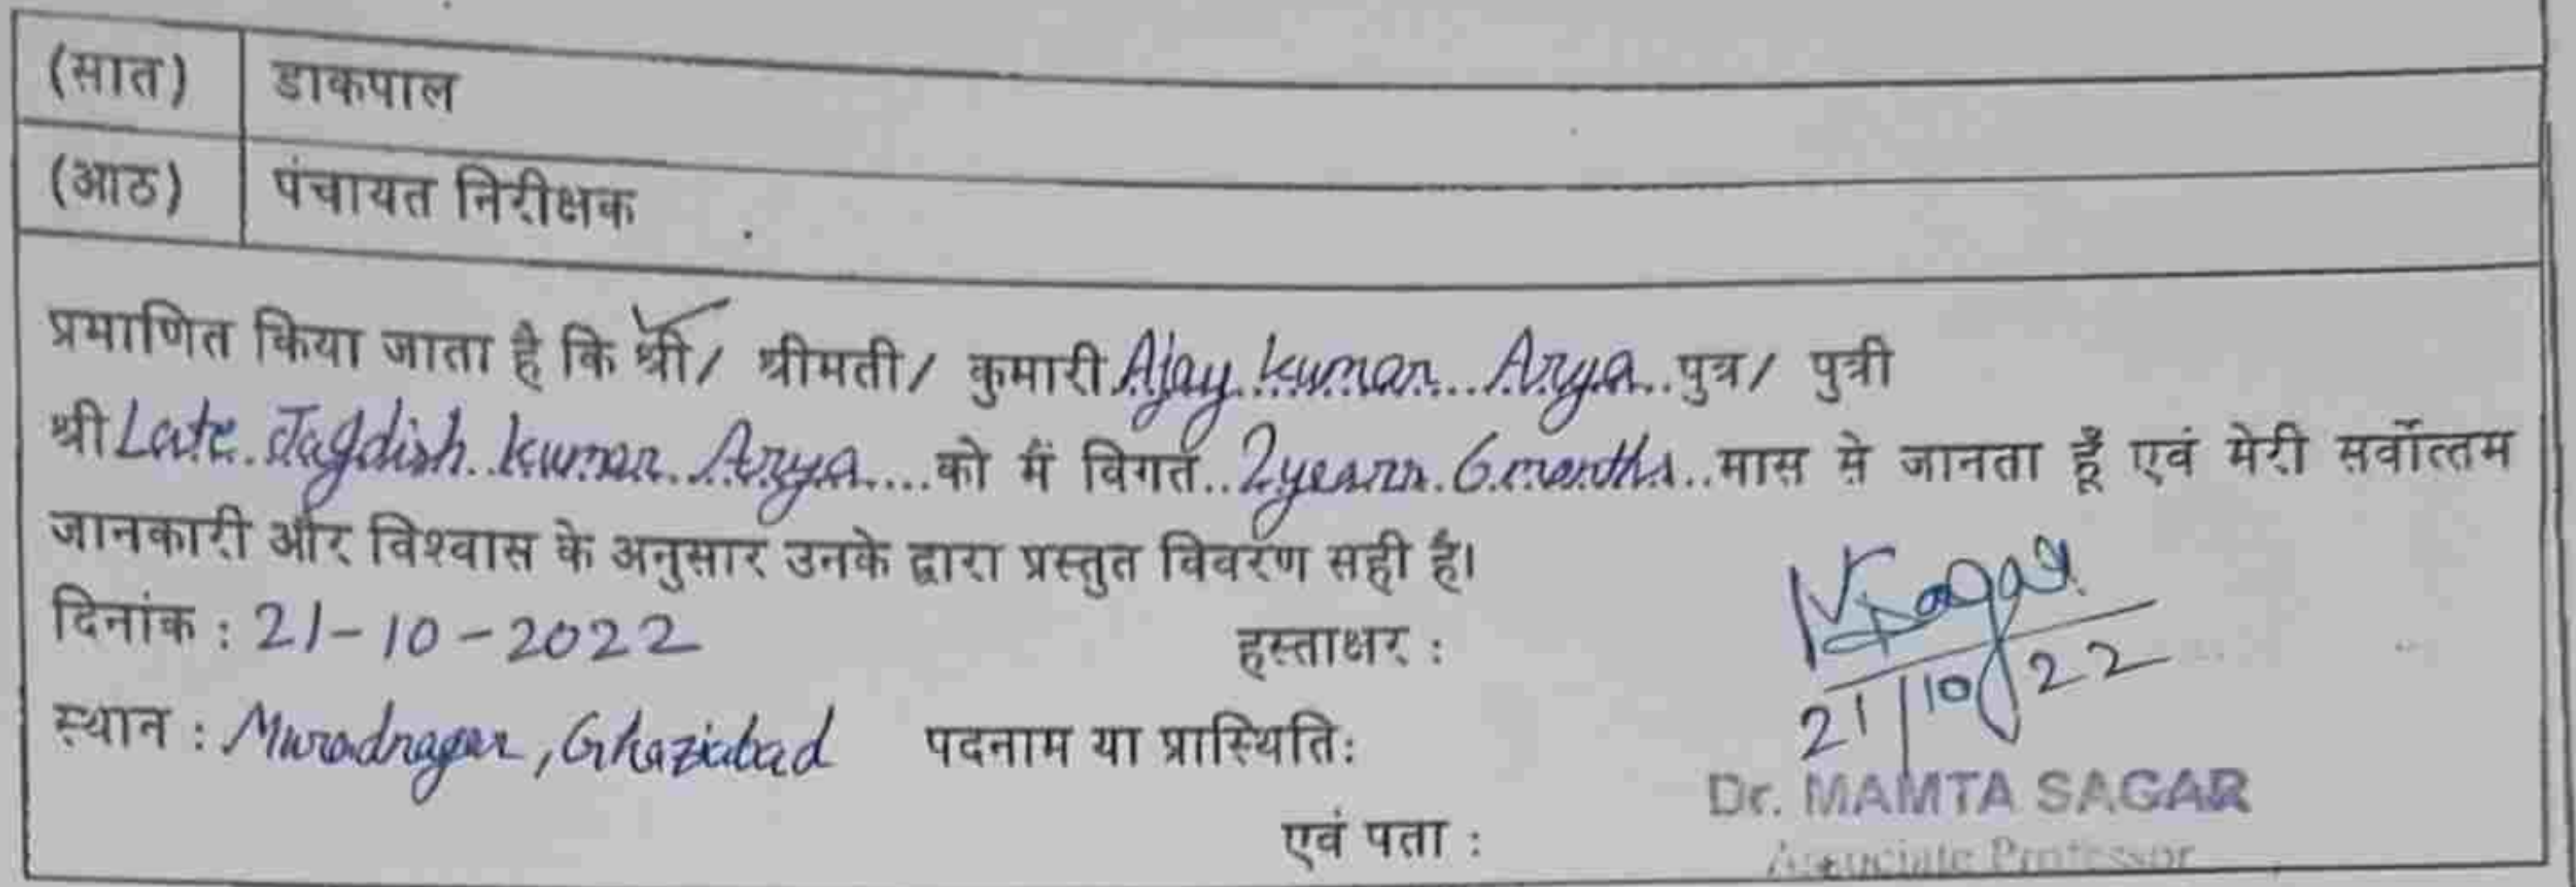 (सात) डाकपाल
(आठ) पंचायत निरीक्षक
प्रमाणित किया जाता है कि श्री/ श्रीमती/ कुमारी Ajay kumar Arya पुत्र/ पुत्री
श्री Late Jagdish kumar Arya को मैं विगत 2years 6 months मास से जानता हूँ एवं मेरी सर्वोत्तम
जानकारी और विश्वास के अनुसार उनके द्वारा प्रस्तुत विवरण सही है।
दिनांक : 21-10-2022 हस्ताक्षर :
21/10/22
स्थान : Muradnagar, Ghaziabad पदनाम या प्रास्थिति:
Dr. MAMTA SAGAR
एवं पता : Associate Professor